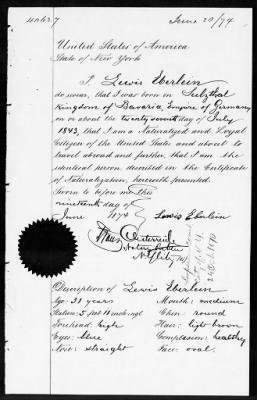 40627 June 20/74
United States of America
State of New York
I Lewis Eberlein
do swear, that I was born in Sulzthal
Kingdom of Bavaria, Empire of Germany
on or about the twenty seventh day of July
1843, that I am a Naturalized and Loyal
Citizen of the United States and about to
travel abroad and further, that I am the
identical person described in the Certificate
of Naturalization, herewith presented.
Sworn to before me this
nineteenth day of
June 1874 Lewis Eberlein
Notary Public
N.Y. City
Description of Lewis Eberlein
Age: 31 years Mouth: medium
Stature: 5 feet 10 inch. engl. Chin: round
Forehead: high Hair: light brown
Eyes: blue Complexion: healthy
Nose: straight Face: oval.